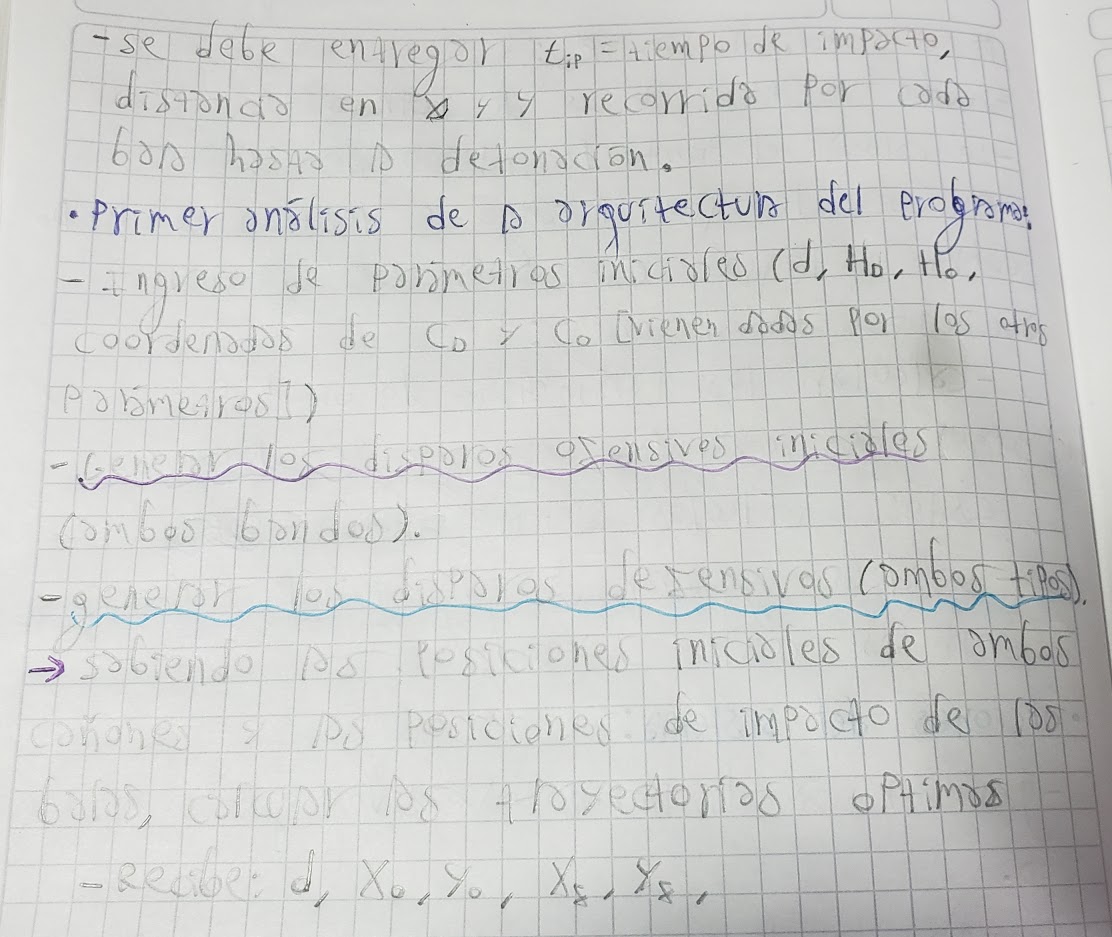 - se debe entregar tip = tiempo de impacto,
distancia en x y y recorrida por cada
bala hasta la detonación.
• Primer análisis de la arquitectura del programa:
- Ingreso de parámetros iniciales (d, Ho, Ho,
coordenadas de Co y Co [vienen dadas por los otros
parámetros])
- Generar los disparos ofensivos iniciales
(ambos bandos).
- generar los disparos defensivos (ambos tipos).
→ sabiendo las posiciones iniciales de ambos
cañones y las posiciones de impacto de las
balas, calcular las trayectorias optimas
- Recibe: d, Xo, Yo, Xf, Yf,